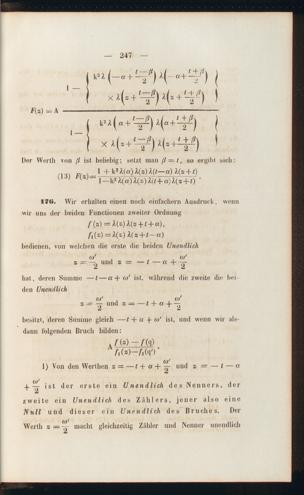 — 247 —
1 — { k² λ (−α + (t−β)/2) λ (−α + (t+β)/2)
× λ (z + (t−β)/2) λ (z + (t+β)/2) }
F(z) = A
1 — { k² λ (α + (t−β)/2) λ (α + (t+β)/2)
× λ (z + (t−β)/2) λ (z + (t+β)/2) }
Der Werth von β ist beliebig; setzt man β = t, so ergibt sich:
(13) F(z) = (1 + k² λ(α) λ(z) λ(t−α) λ(z+t)) / (1 − k² λ(α) λ(z) λ(t+α) λ(z+t)) .
176. Wir erhalten einen noch einfachern Ausdruck, wenn
wir uns der beiden Functionen zweiter Ordnung
f (z) = λ(z) λ(z+t+α),
f₁(z) = λ(z) λ(z+t−α)
bedienen, von welchen die erste die beiden Unendlich
z = ω'/2 und z = −t−α + ω'/2
hat, deren Summe −t−α+ω' ist, während die zweite die bei-
den Unendlich
z = ω'/2 und z = −t+α + ω'/2
besitzt, deren Summe gleich −t+α+ω' ist, und wenn wir als-
dann folgenden Bruch bilden:
A (f(z)−f(q)) / (f₁(z)−f₁(q')) .
1) Von den Werthen z = −t+α + ω'/2 und z = −t−α
+ ω'/2 ist der erste ein Unendlich des Nenners, der
zweite ein Unendlich des Zählers, jener also eine
Null und dieser ein Unendlich des Bruches. Der
Werth z = ω'/2 macht gleichzeitig Zähler und Nenner unendlich